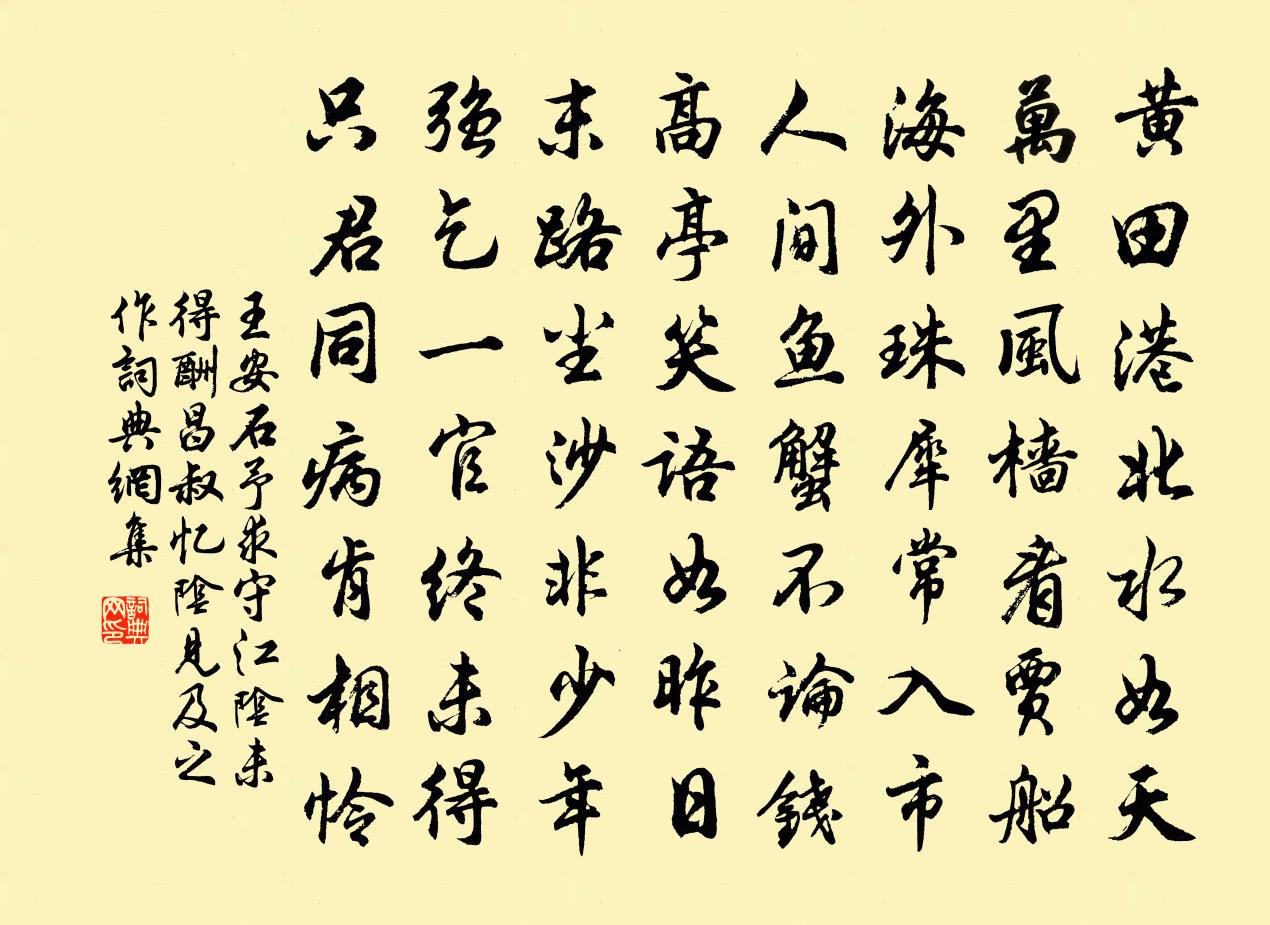 黃田港北水如天
萬里風檣看賈船
海外珠犀常入市
人間魚蟹不論錢
高亭笑語如昨日
末路塵沙非少年
强乞一官終未得
只君同病肯相憐
王安石予求守江陰未
得酬昌叔憶陰見及之
作詞典網集
詞典網印